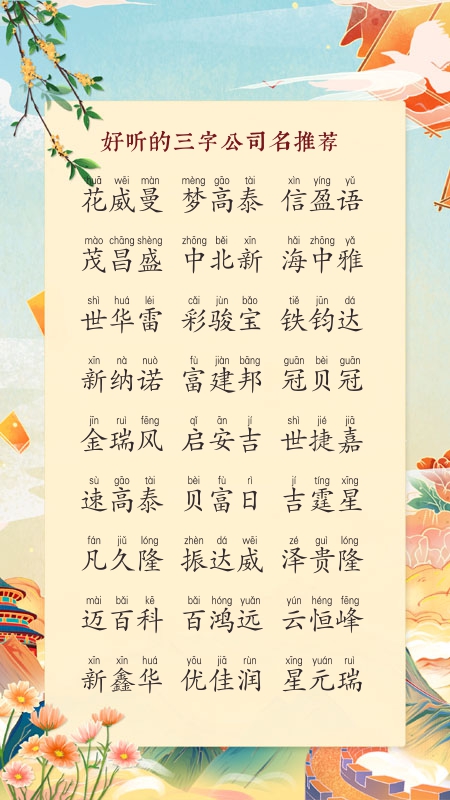 好听的三字公司名推荐
huā wēi màn mèng gāo tài xìn yíng yǔ
花威曼 梦高泰 信盈语
mào chāng shèng zhōng běi xīn hǎi zhōng yǎ
茂昌盛 中北新 海中雅
shì huá léi cǎi jùn bǎo tiě jūn dá
世华雷 彩骏宝 铁钧达
xīn nà nuò fù jiàn bāng guān bèi guān
新纳诺 富建邦 冠贝冠
jīn ruì fēng qǐ ān jí shì jié jiā
金瑞风 启安吉 世捷嘉
sù gāo tài bèi fù rì jí tíng xīng
速高泰 贝富日 吉霆星
fán jiǔ lóng zhèn dá wēi zé guì lóng
凡久隆 振达威 泽贵隆
mài bǎi kē bǎi hóng yuǎn yún héng fēng
迈百科 百鸿远 云恒峰
xīn xīn huá yōu jiā rùn xīng yuán ruì
新鑫华 优佳润 星元瑞